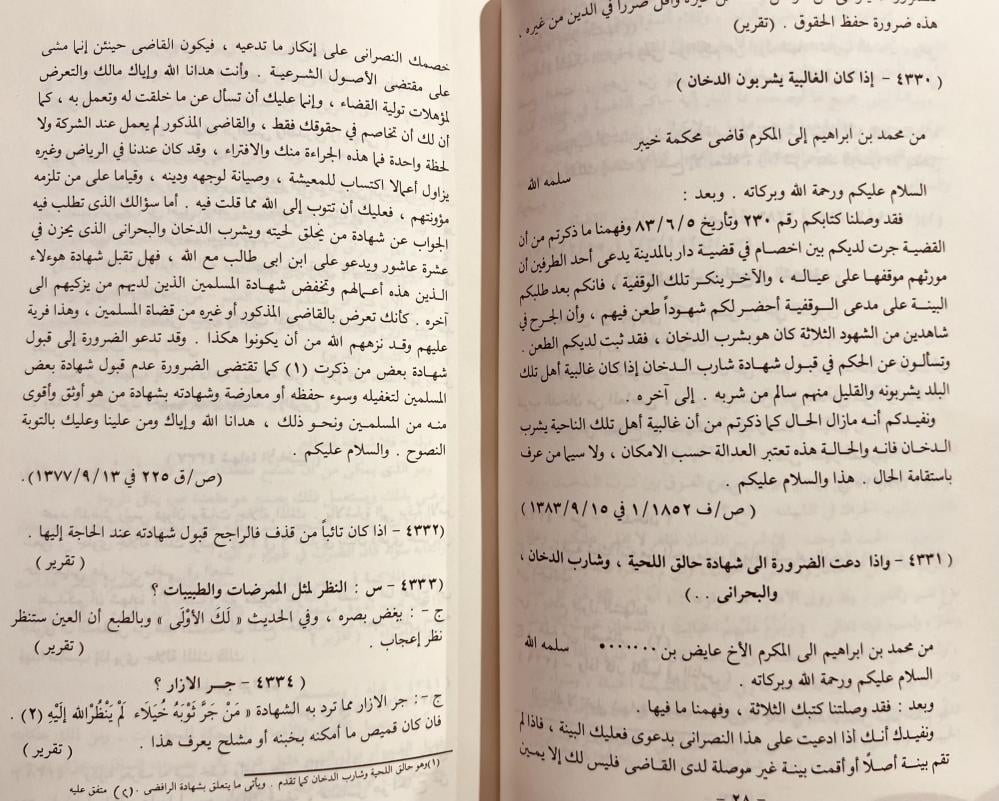 في الدين من غيره ،
هذه ضرورة حفظ الحقوق . (تقرير)
( ٤٣٣٠ - إذا كان الغالبية يشربون الدخان )
من محمد بن ابراهيم إلى المكرم قاضى محكمة خيبر
سلمه الله
السلام عليكم ورحمة الله وبركاته . وبعد :
فقد وصلنا كتابكم رقم ٢٣٠ وتأريخ ٨٣/٦/٥ وفهمنا ما ذكرتم من أن
القضية جرت لديكم بين اخصام في قضية دار بالمدينة يدعى أحد الطرفين أن
مورثهم موقفها على عياله ، والآخر ينكر تلك الوقفية ، فانكم بعد طلبكم
البينة على مدعى الوقفية أحضر لكم شهوداً طعن فيهم ، وأن الجرح في
شاهدين من الشهود الثلاثة كان هو بشرب الدخان ، فقد ثبت لديكم الطعن .
وتسألون عن الحكم في قبول شهادة شارب الدخان إذا كان غالبية أهل تلك
البلد يشربونه والقليل منهم سالم من شربه . إلى آخره .
ونفيدكم أنه مازال الحال كما ذكرتم من أن غالبية أهل تلك الناحية يشرب
الدخان فانه والحالة هذه تعتبر العدالة حسب الامكان ، ولا سيما من عرف
باستقامة الحال . هذا والسلام عليكم .
( ص/ف ١/١٨٥٢ في ١٣٨٣/٩/١٥)
( ٤٣٣١ - واذا دعت الضرورة الى شهادة حالق اللحية ، وشارب الدخان ،
والبحرانى . . )
من محمد بن ابراهيم الى المكرم الأخ عايض بن ....... سلمه الله
السلام عليكم ورحمة الله وبركاته .
وبعد : فقد وصلتنا كتبك الثلاثة ، وفهمنا ما فيها .
ونفيدك أنك أذا ادعيت على هذا النصرانى بدعوى فعليك البينة ، فاذا لم
تقم بينة أصلًا أو أقمت بينة غير موصلة لدى القاضى فليس لك إلا يمين
- ٢٨ -
خصمك النصرانى على إنكار ما تدعيه ، فيكون القاضى حينئن إنما مشى
على مقتضى الأصول الشرعية . وأنت هدانا الله وإياك مالك والتعرض
لمؤهلات تولية القضاء ، وإنما عليك أن تسأل عن ما خلقت له وتعمل به ، كما
أن لك أن تخاصم في حقوقك فقط ، والقاضى المذكور لم يعمل عند الشركة ولا
لحظة واحدة فما هذه الجراءة منك والافتراء ، وقد كان عندنا في الرياض وغيره
يزاول أعمالا اكتساب للمعيشة ، وصيانة لوجهه ودينه ، وقياما على من تلزمه
مؤونتهم ، فعليك أن تتوب إلى الله مما قلت فيه . أما سؤالك الذى تطلب فيه
الجواب عن شهادة من يحلق لحيته ويشرب الدخان والبحرانى الذى يحزن في
عشرة عاشور ويدعو على ابن ابى طالب مع الله ، فهل تقبل شهادة هوءلاء
الذين هذه أعمالهم وتخفض شهادة المسلمين الذين لديهم من يزكيهم الى
آخره . كأنك تعرض بالقاضى المذكور أو غيره من قضاة المسلمين ، وهذا فرية
عليهم وقد نزههم الله من أن يكونوا هكذا . وقد تدعو الضرورة إلى قبول
شهادة بعض من ذكرت (١) كما تقتضى الضرورة عدم قبول شهادة بعض
المسلمين لتغفيله وسوء حفظه أو معارضة وشهادته بشهادة من هو أوثق وأقوى
منه من المسلمين ونحو ذلك ، هدانا الله وإياك ومن علينا وعليك بالتوبة
النصوح . والسلام عليكم .
(ص/ق ٢٢٥ في ١٣٧٧/٩/١٣).
(٤٣٣٢ - اذا كان تائباً من قذف فالراجح قبول شهادته عند الحاجة إليها .
( تقرير )
(٤٣٣٣ - س : النظر لمثل الممرضات والطبيبات ؟
ج - : يغض بصره ، وفي الحديث « لَكَ الأوْلَى » وبالطبع أن العين ستنظر
نظر إعجاب .
( تقرير )
( ٤٣٣٤ - جر الازار ؟
ج - : جر الازار مما ترد به الشهادة « مَنْ جَرَّ ثَوْبَهُ خُيَلَاء لَمْ يَنْظُرْ اللهُ إلَيْهِ (٢) .
فان كان قميص ما أمكنه بخبنه أو مشلح يعرف هذا .
( تقرير )
(١) وهو حالق اللحية وشارب الدخان كما تقدم . ويأتى ما يتعلق بشهادة الرافضى . (٢) متفق عليه